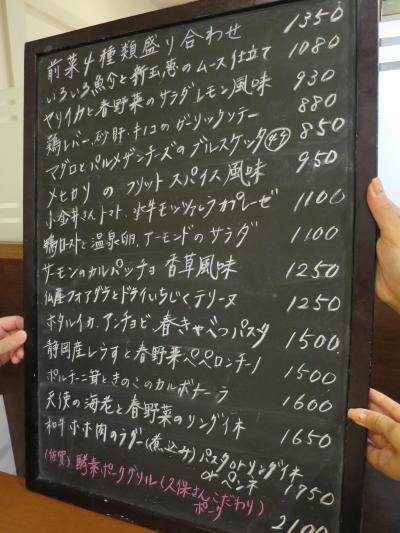 前菜4種類盛り合わせ 1350
いろいろ魚介と新玉葱のムース仕立て 1080
ヤリイカと春野菜のサラダ レモン風味 930
鶏レバー、砂肝、キノコのガーリックソテー 880
マグロとパルメザンチーズのブルスケッタ 850
メヒカリのフリット スパイス風味 950
小金井さんトマト、水牛モッツァレラ カプレーゼ 1100
鶏ローストと温泉卵、アーモンドのサラダ 1100
サーモンのカルパッチョ 香草風味 1250
仏産フォアグラとドライいちじくテリーヌ 1250
ホタルイカ、アンチョビ、春きゃべつパスタ 1500
静岡産しらすと春野菜ペペロンチーノ 1500
ポルチーニ茸ときのこのカルボナーラ 1600
天使の海老と春野菜のリングイネ 1650
和牛ホホ肉のラグー(煮込み)パスタorリングイネ
orペンネ 1750
(佐賀)酵素ポークグリル(久保さんこだわり)
ポーク 2100